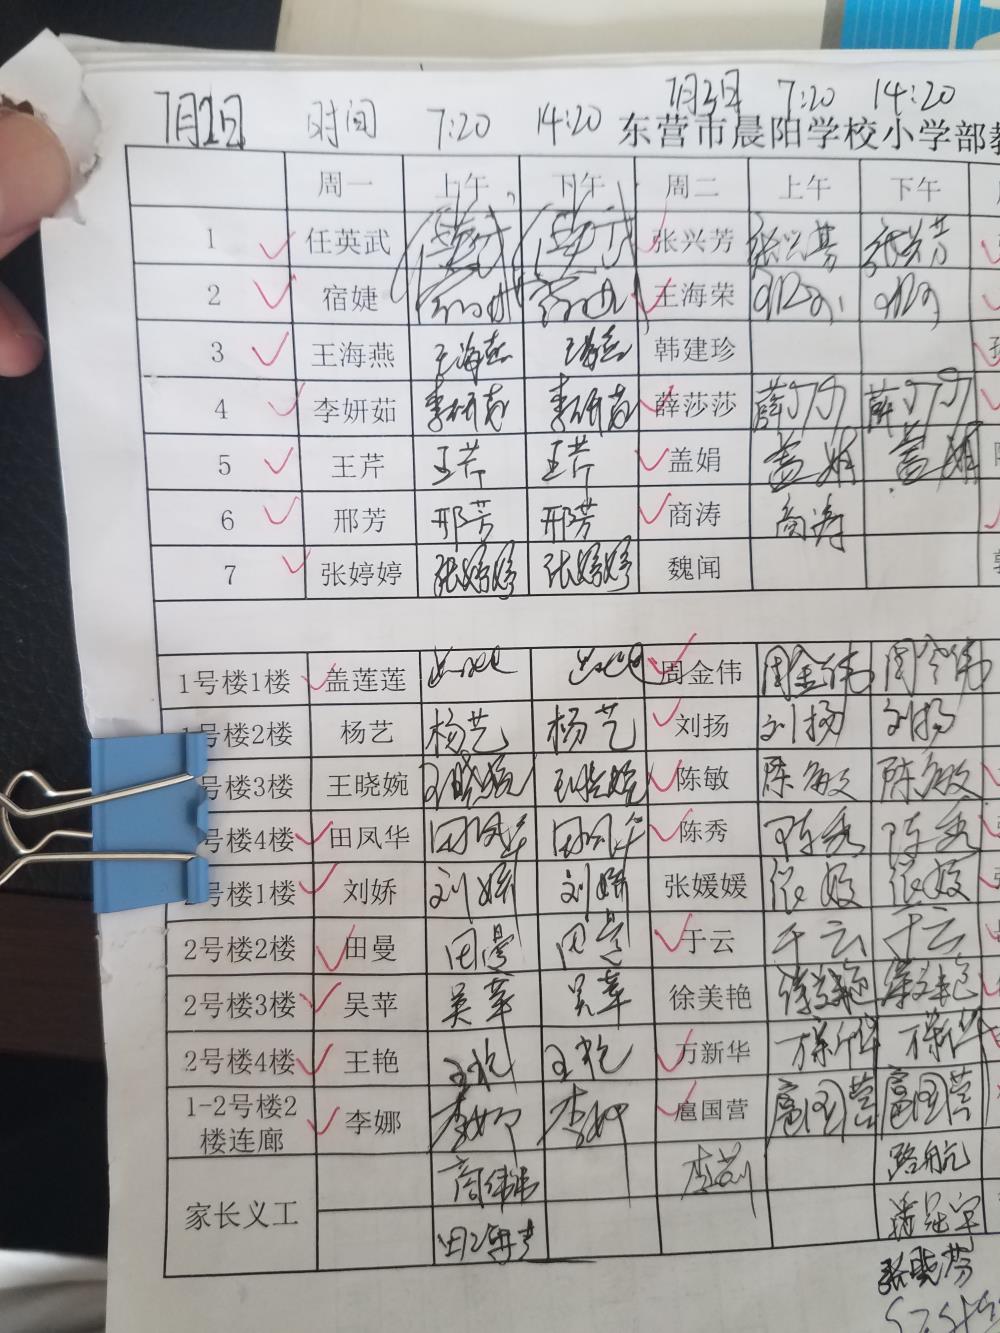 7月3日 7:20 14:20
7月2日 时间 7:20 14:20 东营市晨阳学校小学部
周一 上午 下午 周二 上午 下午
1 任英武 张兴芳 张兴芳 张兴芳
2 宿婕 王海荣
3 王海燕 王海燕 王海燕 韩建珍
4 李妍茹 李妍茹 李妍茹 薛莎莎 薛莎莎 薛莎莎
5 王芹 王芹 王芹 盖娟 盖娟 盖娟
6 邢芳 邢芳 邢芳 商涛 商涛
7 张婷婷 张婷婷 张婷婷 魏闻
1号楼1楼 盖莲莲 周金伟 周金伟 周金伟
1号楼2楼 杨艺 杨艺 杨艺 刘扬 刘扬 刘扬
号楼3楼 王晓婉 王晓婉 王晓婉 陈敏 陈敏 陈敏
号楼4楼 田凤华 田凤华 田凤华 陈秀 陈秀 陈秀
号楼1楼 刘娇 刘娇 刘娇 张媛媛 张媛 张媛
2号楼2楼 田曼 田曼 田曼 于云 于云 于云
2号楼3楼 吴苹 吴苹 吴苹 徐美艳 徐美艳 徐美艳
2号楼4楼 王艳 王艳 王艳 万新华 万新华 万新华
1-2号楼2
楼连廊 李娜 李娜 李娜 扈国营 扈国营 扈国营
家长义工 商伟伟 路航
张晓芬